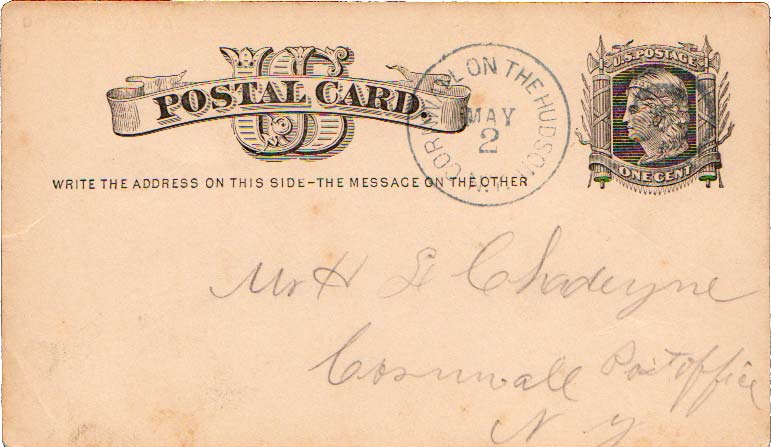 US
POSTAL CARD.
WRITE THE ADDRESS ON THIS SIDE-THE MESSAGE ON THE OTHER
CORNWALL ON THE HUDSON N.Y.
MAY
2
U.S. POSTAGE
ONE CENT
Mr H
Cornwall Post office
N Y